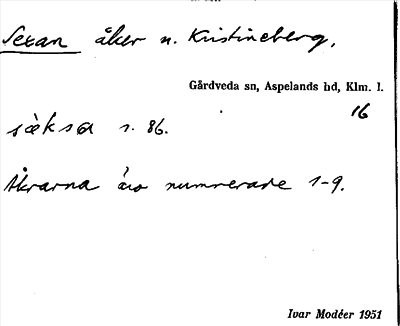 Sexan åker n. Kristineberg.
Gårdveda sn, Aspelands hd, Klm. l.
16
sèksa s. 86.
Åkrarna äro numrerade 1-9.
Ivar Modéer 1951